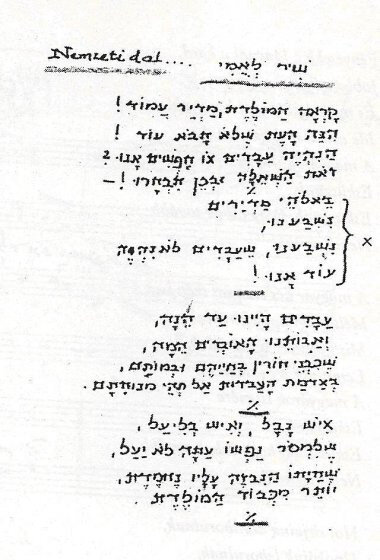 Nemzeti dal....
שִׁיר לְאֻמִּי
קָרְאָה הַמּוֹלֶדֶת, מַדְיָר עֲמוֹד!
הִנֵּה הָעֵת שֶׁלֹּא תָבֹא עוֹד!
הֲנִהְיֶה עֲבָדִים אוֹ חָפְשִׁים אָנוּ?
זֹאת הַשְּׁאֵלָה וּבְכֵן תִּבְחָרוּ! –
٪
בֵּאלֹהֵי מַדְיָרִים
נִשְׁבַּעְנוּ,
נִשְׁבַּעְנוּ, שֶׁעֲבָדִים לֹא נִהְיֶה
עוֹד אָנוּ!
x
עֲבָדִים הָיִינוּ עַד הֵנָּה,
וַאֲבוֹתֵינוּ הָאוֹבְדִים הֵמָּה,
שֶׁכִּבְנֵי חוֹרִין בְּחַיֵּיהֶם וּבְמוֹתָם,
בְּאַדְמַת הָעַבְדוּת אַל תְּהִי מְנוּחָתָם.
٪
אִישׁ נָבָל, וְאִישׁ בְּלִיַּעַל,
שֶׁלִּמְסֹר נַפְשׁוֹ עַתָּה לֹא יַעַל,
שֶׁחַיָּתוֹ הַנִּבְזָה עָלָיו נֶחְמֶדֶת,
יוֹתֵר מִכְּבוֹד הַמּוֹלֶדֶת.
٪